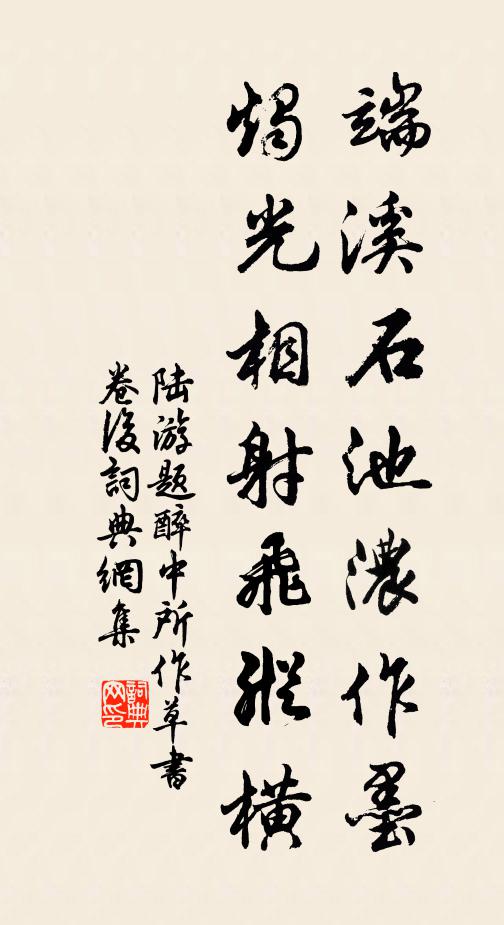 端溪石池濃作墨
燭光相射飛縱橫
陆游题醉中所作草書
卷後詞典網集
詞典
网印